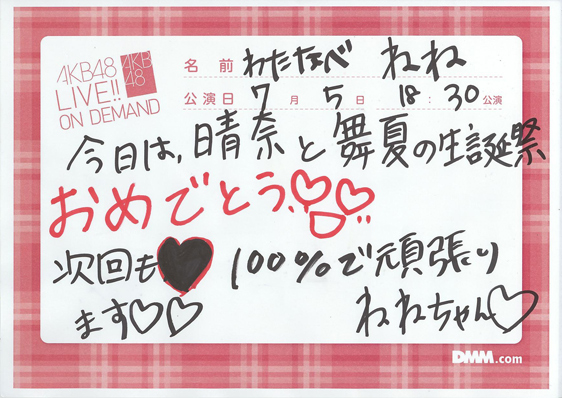 AKB48
LIVE!!
ON DEMAND
AKB
48
名前 わたなべ ねね
公演日 7月 5日 18:30公演
今日は,晴奈と舞夏の生誕祭
おめでとう、♡♡!!
次回も♥100%で頑張り
ます♡♡ ねねちゃん♡
DMM.com